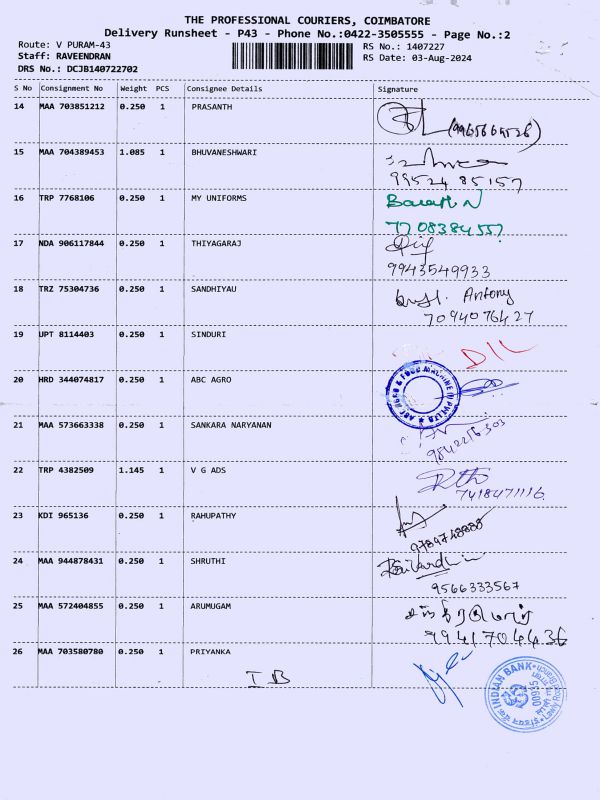 THE PROFESSIONAL COURIERS, COIMBATORE
Delivery Runsheet - P43 - Phone No.:0422-3505555 - Page No.:2
Route: V PURAM-43
RS No.: 1407227
Staff: RAVEENDRAN
RS Date: 03-Aug-2024
DRS No.: DCJB140722702
S No Consignment No Weight PCS Consignee Details Signature
14 MAA 703851212 0.250 1 PRASANTH
15 MAA 704389453 1.085 1 BHUVANESHWARI
99524 85157
16 TRP 7768106 0.250 1 MY UNIFORMS
Barath N
17 NDA 906117844 0.250 1 THIYAGARAJ
9943549933
18 TRZ 75304736 0.250 1 SANDHIYAU
Antony
7094076427
19 UPT 8114403 0.250 1 SINDURI
20 HRD 344074817 0.250 1 ABC AGRO
ABC AGRO & FOOD MACHINE (I) PVT LTD
21 MAA 573663338 0.250 1 SANKARA NARYANAN
22 TRP 4382509 1.145 1 V G ADS
7418471116
23 KDI 965136 0.250 1 RAHUPATHY
24 MAA 944878431 0.250 1 SHRUTHI
9566333567
25 MAA 572404855 0.250 1 ARUMUGAM
9941704436
26 MAA 703580780 0.250 1 PRIYANKA
I B
INDIAN BANK